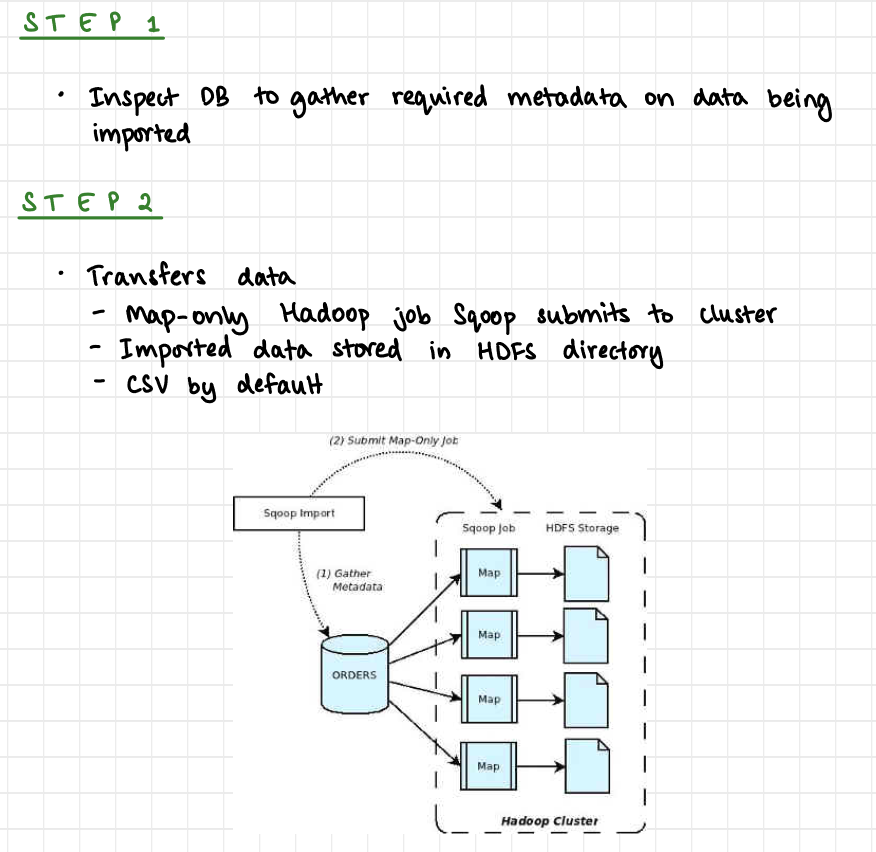 STEP 1
• Inspect DB to gather required metadata on data being
imported
STEP 2
• Transfers data
- Map-only Hadoop job Sqoop submits to cluster
- Imported data stored in HDFS directory
- CSV by default
(2) Submit Map-Only Job
Sqoop Import
Sqoop Job HDFS Storage
(1) Gather
Metadata
Map
Map
ORDERS
Map
Map
Hadoop Cluster